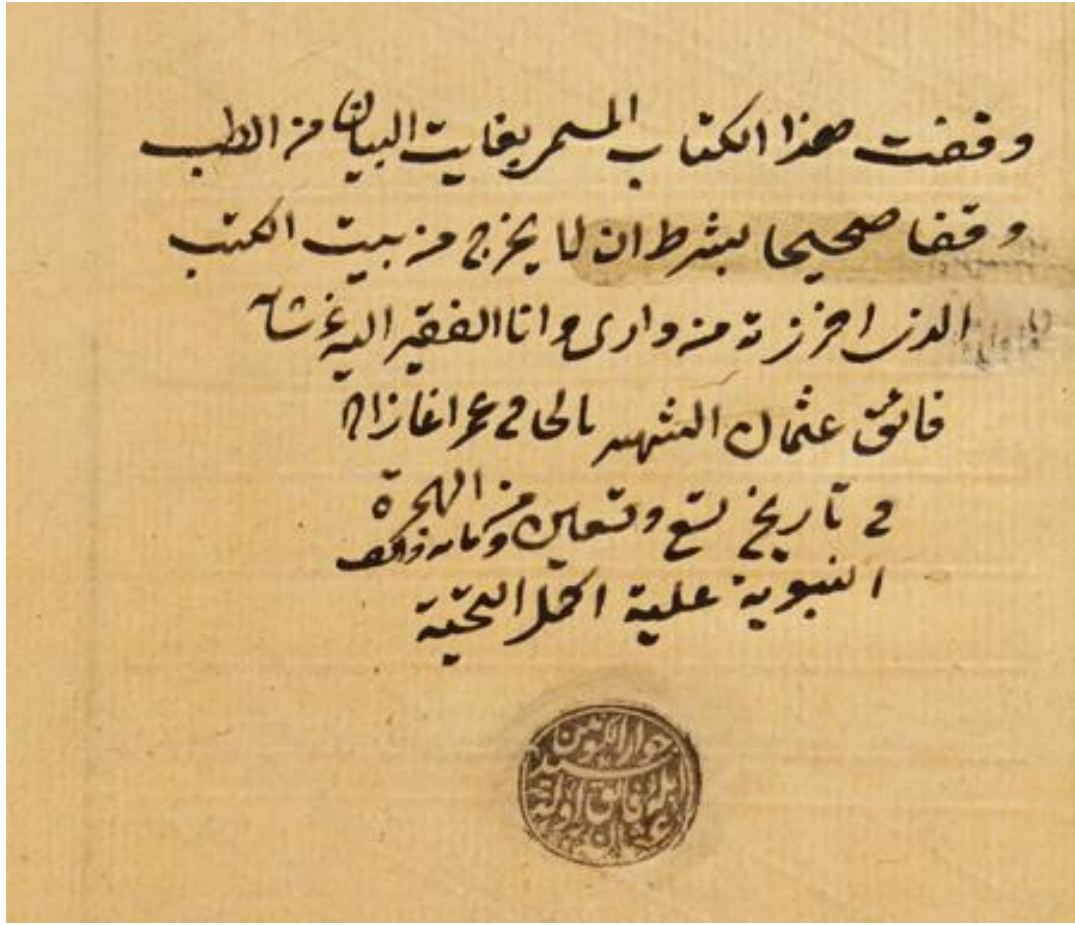 وقفت هذا الكتاب المسمى بغايت البيان من الطب
وقفا صحيحا بشرط ان لا يخرج من بيت الكتب
الذى افرزته من دارى وانا الفقير اليه عز شانه
فائق عثمان الشهير بالحاج عمر اغازاده
فى تاريخ تسع وتسعين ومايه والف من الهجرة
النبوية عليه اكمل التحية
فائق